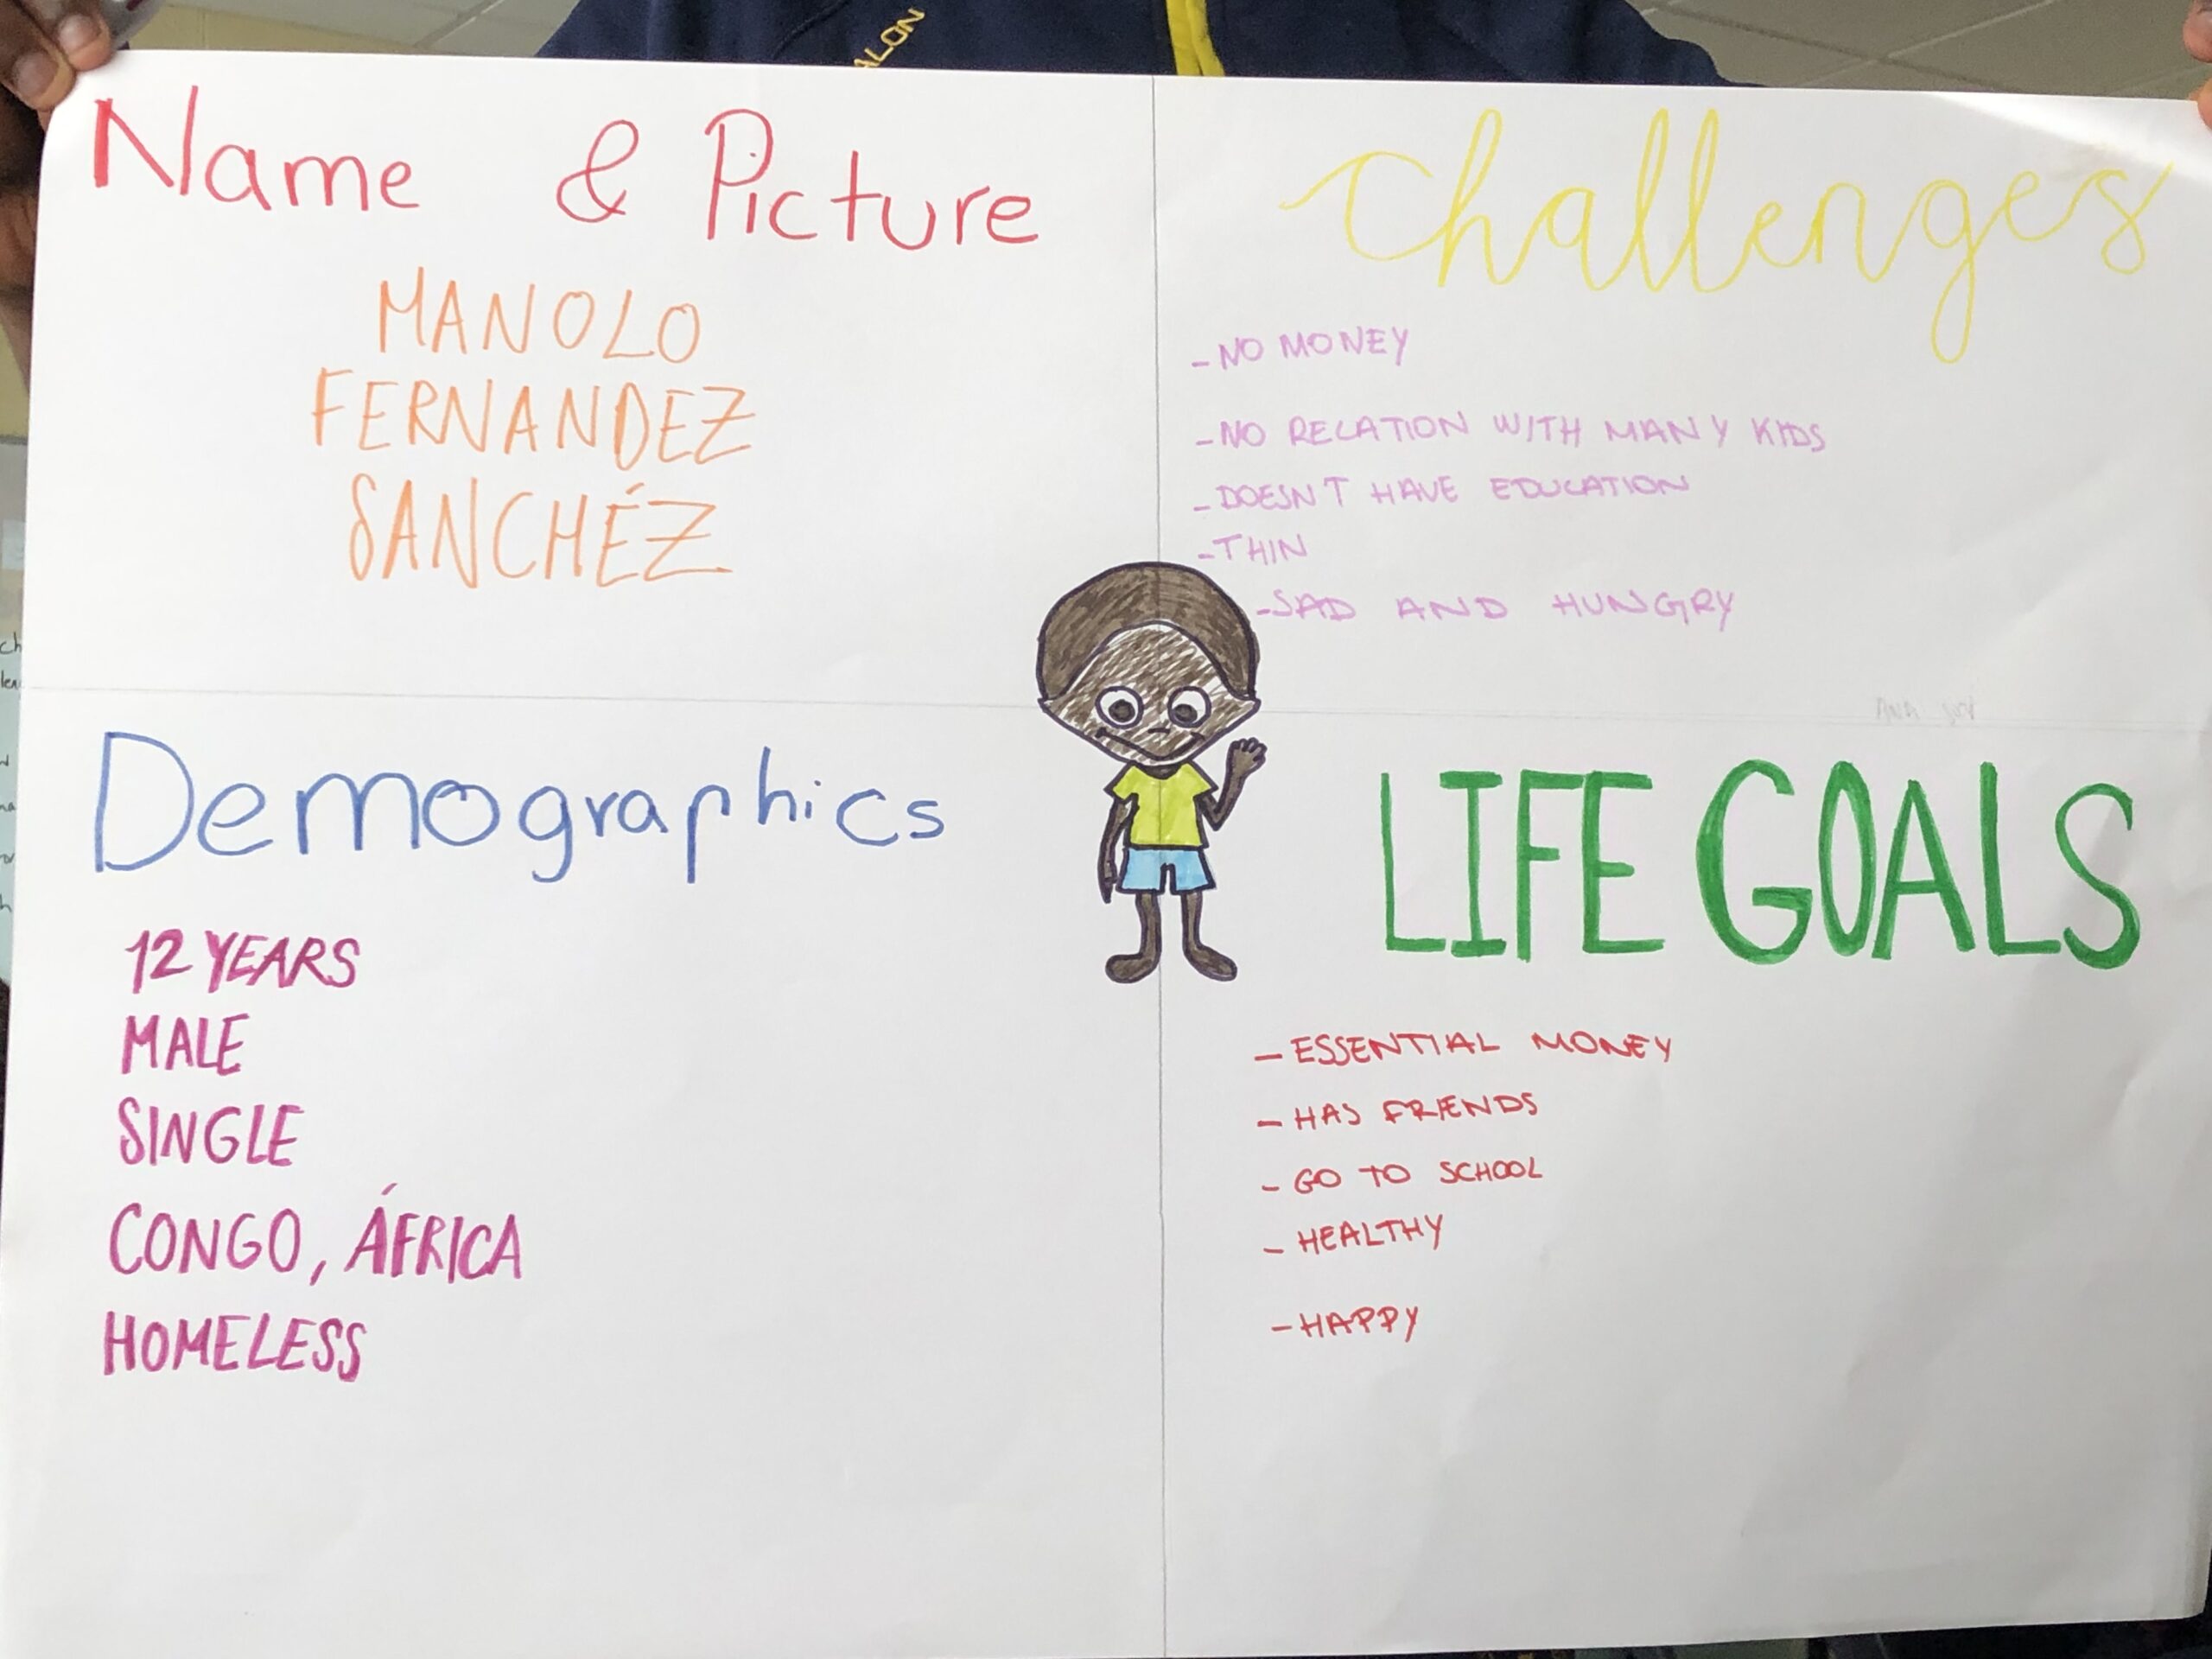 ALON
Name & Picture
MANOLO
FERNANDEZ
SANCHÉZ
Challenges
- NO MONEY
- NO RELATION WITH MANY KIDS
- DOESN'T HAVE EDUCATION
- THIN
- SAD AND HUNGRY
Demographics
12 YEARS
MALE
SINGLE
CONGO, ÁFRICA
HOMELESS
LIFE GOALS
- ESSENTIAL MONEY
- HAS FRIENDS
- GO TO SCHOOL
- HEALTHY
- HAPPY